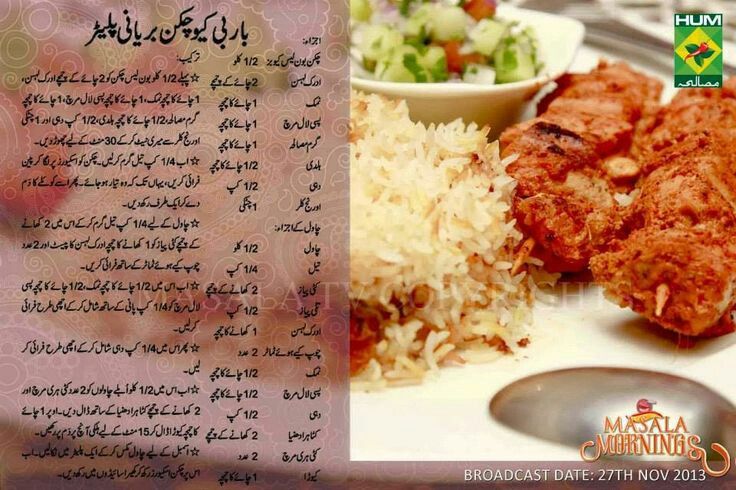 باربی کیو چکن بریانی پلیٹر
اجزاء:
چکن بون لیس کیوبز 1/2 کلو
ادرک لہسن 2 چائے کے چمچے
نمک 1 چائے کا چمچہ
پسی لال مرچ 1 چائے کا چمچہ
گرم مصالحہ 1 چائے کا چمچہ
ہلدی 1/2 چائے کا چمچہ
دہی 1/2 کپ
اورنج کلر 1 چٹکی
چاول کے اجزاء:
چاول 1/2 کلو
تیل 1/4 کپ
کٹی پیاز 2 کھانے کے چمچے
تلی پیاز 1/2 کپ
ادرک لہسن 1 کھانے کا چمچہ
چوپ کیے ہوئے ٹماٹر 2 عدد
نمک 1/2 چائے کا چمچہ
پسی لال مرچ 1/2 چائے کا چمچہ
دہی 1/2 کپ
کٹا ہرا دھنیا 2 کھانے کے چمچے
کٹی ہری مرچ 2 عدد
کیوڑا 1 چائے کا چمچہ
ترکیب:
☆ پہلے 1/2 کلو بون لیس چکن کو 2 چائے کے چمچے ادرک لہسن،
1 چائے کا چمچہ نمک، 1 چائے کا چمچہ پسی لال مرچ، 1 چائے کا چمچہ
گرم مصالحہ، 1/2 چائے کا چمچہ ہلدی، 1/2 کپ دہی اور 1 چٹکی
اورنج کلر سے میری نیٹ کر کے 30 منٹ کے لیے چھوڑ دیں۔
☆ اب 1/4 کپ تیل گرم کر لیں۔ چکن کو اسکیورز پر لگا کر پین
فرائی کریں، یہاں تک کہ وہ تیار ہو جائے۔ پھر اسے کوئلے کا دَم
دے کر ایک طرف رکھ دیں۔
☆ چاول کے لیے 1/4 کپ تیل گرم کر کے اس میں 2 کھانے
کے چمچے کٹی پیاز کو 1 کھانے کا چمچہ ادرک لہسن کا پیسٹ اور 2 عدد
چوپ کیے ہوئے ٹماٹر کے ساتھ فرائی کریں۔
☆ اب اس میں 1/2 چائے کا چمچہ نمک، 1/2 چائے کا چمچہ پسی
لال مرچ کو 1/4 کپ پانی کے ساتھ شامل کر کے اچھی طرح فرائی
کر لیں۔
☆ پھر اس میں 1/4 کپ دہی شامل کر کے اچھی طرح فرائی کر
لیں۔
☆ اب اس میں 1/2 کلو اُبلے چاولوں کو 2 عدد کٹی ہری مرچ اور
2 کھانے کے چمچے کٹا ہرا دھنیا کے ساتھ ڈال دیں۔ اوپر 1 چائے
کا چمچہ کیوڑا ڈال کر 15 منٹ کے لیے ہلکی آنچ پر دَم پر رکھیں۔
☆ اسمبل کے لیے چاول مکس کر کے ایک پلیٹر میں نکالیں۔ اب
اس پر چکن اسکیورز رکھ کر کھیرا سائیڈوں میں رکھ دیں۔
HUM
مصالحہ
MASALA TV COPYRIGHTS
MASALA
MORNINGS
BROADCAST DATE: 27TH NOV 2013